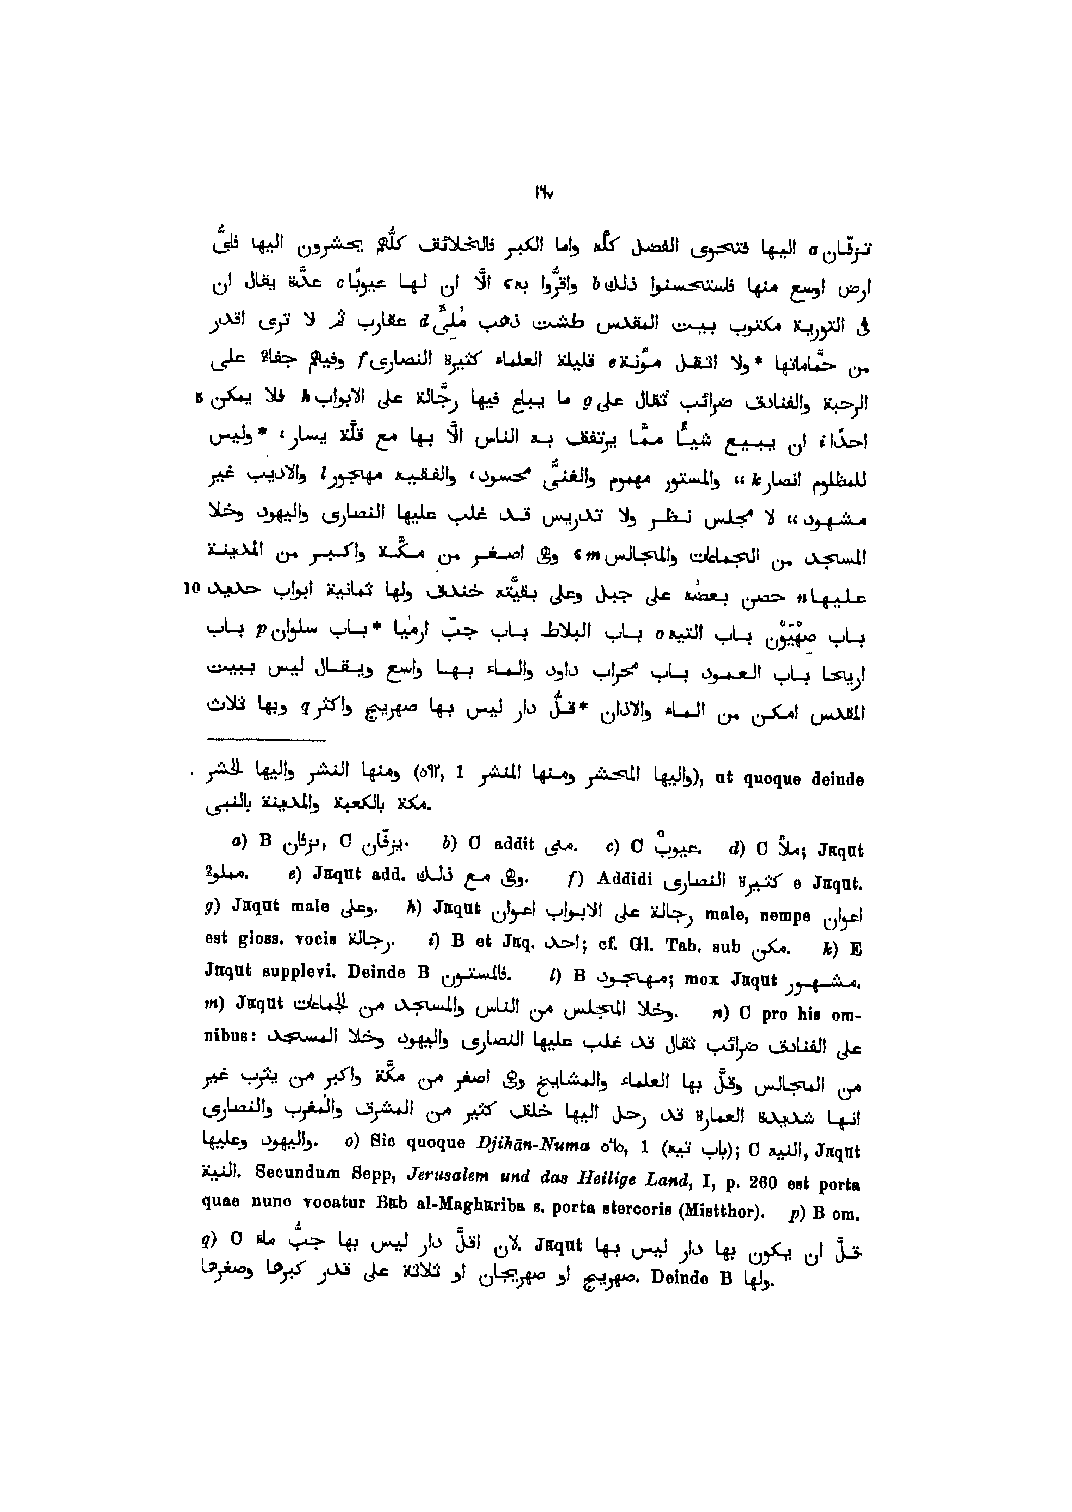 ١٦٧
تزفّان a اليها فتحوى الفضل كلّه واما الكبر فالخلائف كلّهم يحشرون اليها فاىُّ
ارض اوسع منها فاستحسنوا ذلك b واقرُّوا به c الّا ان لها عيوبًا c عدَّة يقال ان
فى التورية مكتوب بيت المقدس طشت ذهب مُلِىَّ d عقارب ثم لا ترى اقذر
من حمَّاماتها *ولا اثقل مؤنة e قليلة العلماء كثيرة النصارى f وفيهم جفاء على
الرحبة والفنادق ضرائب ثقال على g ما يباع فيها رجَّالة على الابواب h فلا يمكن 5
احدًا i ان يبيع شيأً ممَّا يرتفق به الناس الَّا بها مع قلَّة يسار، *وليس
للمظلوم انصار k ،، والمستور مهموم والغنىُّ محسود، والفقيه مهجور l والاديب غير
مشهود،، لا مجلس نظر ولا تدريس قد غلب عليها النصارى واليهود وخلا
المسجد من الجماعات والمجالس m ، وهى اصغر من مكَّة واكبر من المدينة
عليها n حصن بعضه على جبل وعلى بقيَّته خندق ولها ثمانية ابواب حديد 10
باب صهْيَوْن باب التيه o باب البلاط باب جبّ ارميا *باب سلوان p باب
اريحا باب العمود باب محراب داود والماء بها واسع ويقال ليس ببيت
المقدس امكن من الماء والاذان *قلَّ دار ليس بها صهريج واكثر q وبها ثلاث
ومنها النشر واليها الحشر (٥٩٢, 1 واليها المحشر ومنها المنشر), ut quoque deinde
مكة بالكعبة والمدينة بالنبى.
a) B تزفان, C يزفّان. b) C addit منى. c) C عيوبٌ. d) C ملأ; Jaqut
مملوة. e) Jaqut add. وهى مع ذلك. f) Addidi كثيرة النصارى e Jaqut.
g) Jaqut male وعلى. h) Jaqut رجالة على الابواب اعوان male, nempe اعوان
est gloss. vocis رجالة. i) B et Jaq. احد; cf. Gl. Tab. sub مكن. k) E
Jaqut supplevi. Deinde B فالمستون. l) B مهجود; mox Jaqut مشهور.
m) Jaqut وخلا المجلس من الناس والمسجد من الجماعات. n) C pro his om-
nibus: على الفنادق ضرائب ثقال قد غلب عليها النصارى واليهود وخلا المسجد
من المجالس وقلَّ بها العلماء والمشايخ وهى اصغر من مكَّة واكبر من يثرب غير
انها شديدة العمارة قد رحل اليها خلق كثير من المشرق والمغرب والنصارى
واليهود وعليها. o) Sic quoque Djihān-Numa ٥٦٥, 1 (باب تيه); C النيه, Jaqut
النية. Secundum Sepp, Jerusalem und das Heilige Land, I, p. 260 est porta
quae nunc vocatur Bab al-Maghāriba s. porta stercoris (Mistthor). p) B om.
q) C لان اقلَّ دار ليس بها جبُّ ماء. Jaqut قلَّ ان يكون بها دار ليس بها
صهريج او صهريجان او ثلاثة على قدر كبرها وصغرها. Deinde B ولها.